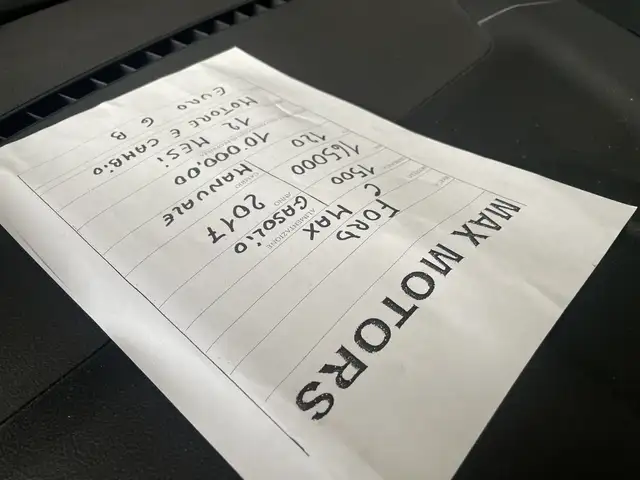 MAX MOTORS
FORD
C MAX
1500 GASOLIO
ALIMENTAZIONE
165000 2017
ANNO
120 MANUALE
CAMBIO
10000,00
12 MESI
MOTORE E CAMBIO
EURO 6 B